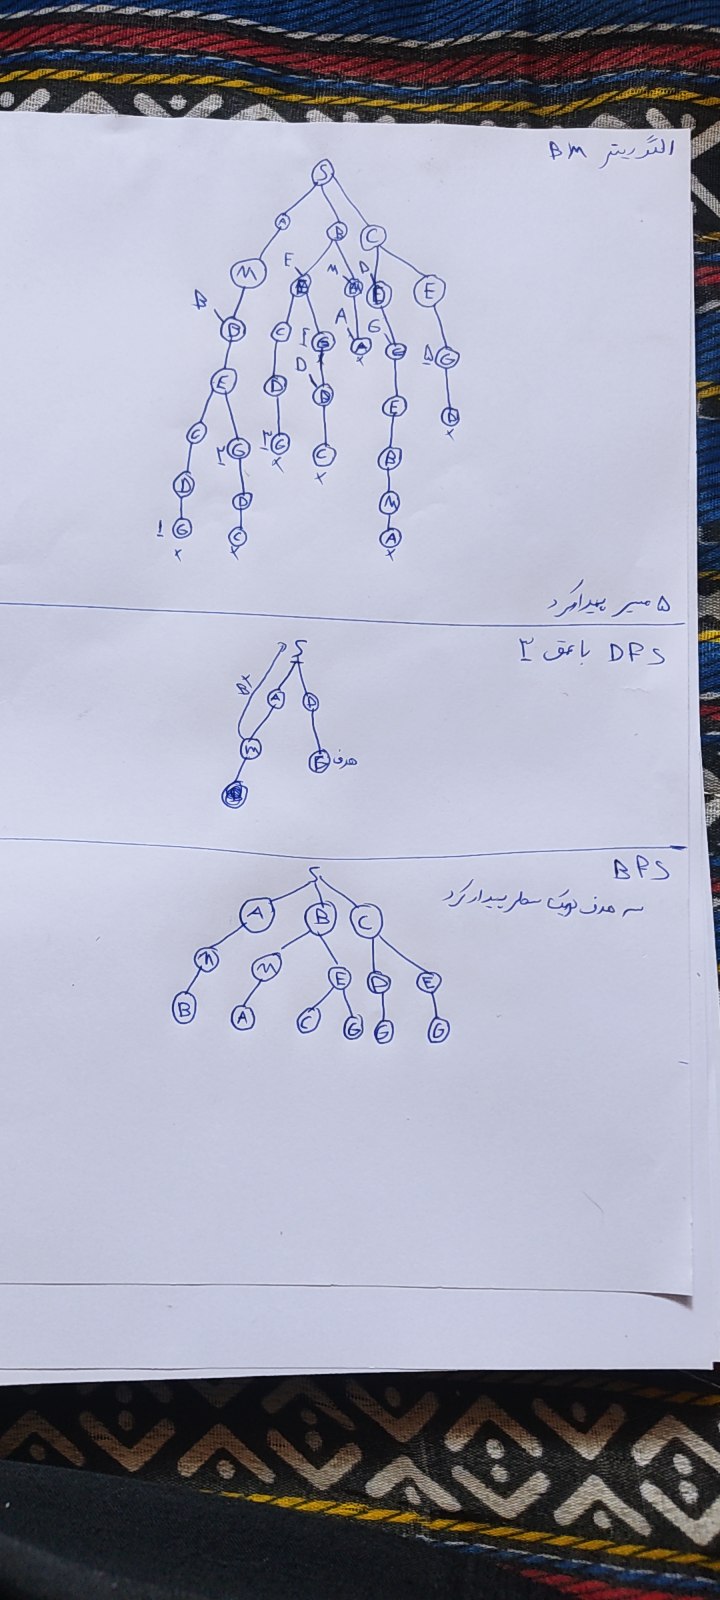 الگوریتم BM
S
A B C
E
M E M D D E
B
D C 4 G A G 5 G
A
G
D
E D D x E D
x
C 2 G 3 G C B
x x
D D M
1 G C A
x x x
5 مسیر پیدا کرد
DFS با عمق 3
S
BT
A D
M E هدف
BFS
سه هدف توی یک سطر پیدا کرد
S
A B C
M M E D E
B A C G G G